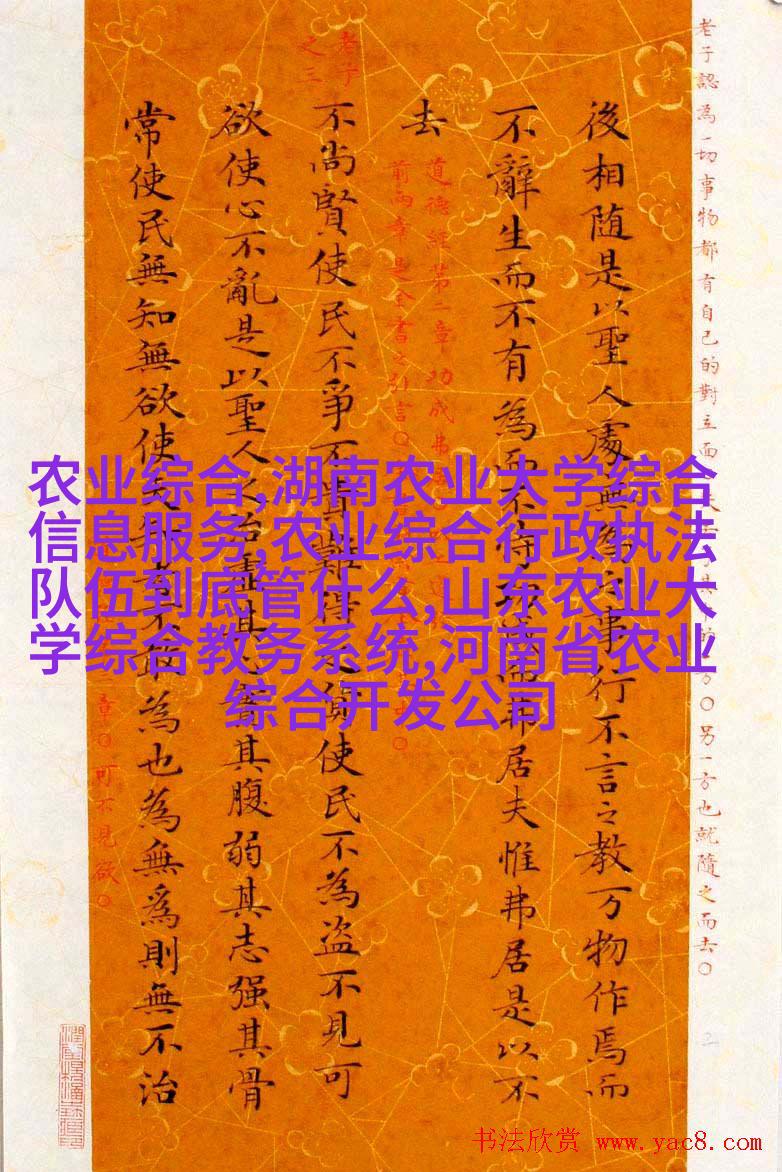 农业综合,湖南农业大学综合
信息服务,农业综合行政执法
队伍到底管什么,山东农业大
学综合教务系统,河南省农业
综合开发公司
老子認為一切事物都有自己的對立面 方〇另一方也就隨之而去〇
後相随是以聖人處無為之事行不言之教万物作焉而
不辭生而不有為而不恃功成而弗居夫惟弗居是以不
去
道德經第 章功成弗居
前兩章是全書之引言〇
老子
之三
不尚賢使民不爭不貴難得之貨使民不為盗不見可
欲使心不亂是以聖人之治虛其心實其腹弱其志强其骨
常使民無知無欲使夫知者不敢為也為無為則無不治
三章〇可不見欲〇
书法欣赏 www.yac8.com